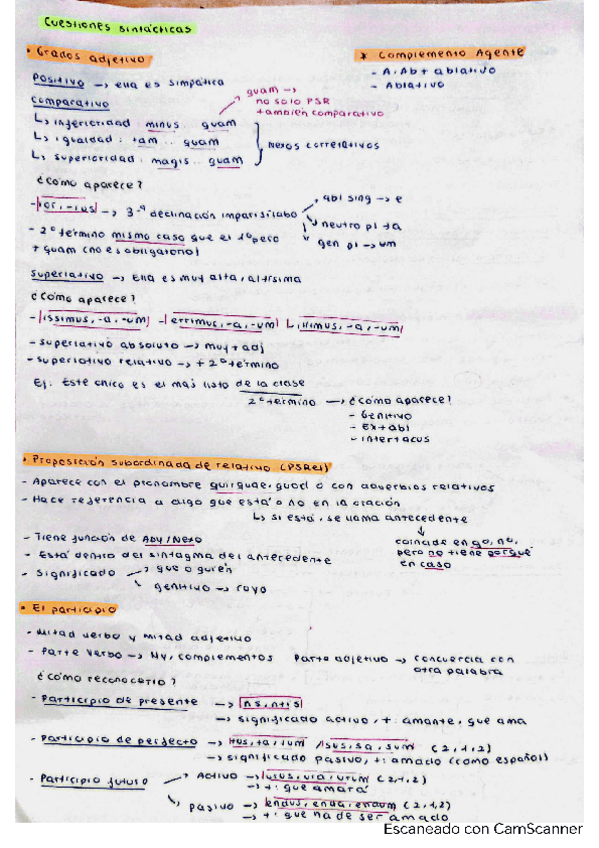 Cuestiones sintácticas
• Grados adjetivo
Positivo → ella es simpática
Comparativo
↳ inferioridad: minus... quam
↳ igualdad: tam... quam
↳ superioridad: magis... quam
quam →
no solo PSR
también comparativo
Nexos correlativos
¿Cómo aparece?
- |ior, -ius| → 3ª declinación imparisílabo
abl sing → e
neutro pl → a
gen pl → um
- 2º término mismo caso que el 1º pero
+ quam (no es obligatorio)
Superlativo → Ella es muy alta, altísima
¿Cómo aparece?
- |issimus, -a, -um| - |errimus, -a, -um| |illimus, -a, -um|
- Superlativo absoluto → muy + adj
- Superlativo relativo → + 2º término
Ej: Este chico es el más listo de la clase
2º término → ¿cómo aparece?
- Genitivo
- Ex + abl
- Inter + acus
* Complemento Agente
- A, Ab + ablativo
- Ablativo
• Proposición subordinada de relativo (PSRel)
- Aparece con el pronombre qui, quae, quod o con adverbios relativos
- Hace referencia a algo que está o no en la oración
↳ Si está, se llama antecedente
↓
coincide en gº, nº,
pero no tiene porqué
en caso
- Tiene función de Ady/Nexo
- Está dentro del sintagma del antecedente
- Significado → que o quién
genitivo → cuyo
• El participio
- Mitad verbo y mitad adjetivo
- Parte verbo → NV, complementos Parte adjetivo → concuerda con
otra palabra
¿Cómo reconocerlo?
- Participio de presente → |ns, ntis|
→ significado activo, t: amante, que ama
- Participio de perfecto → |tus, ta, tum| /|sus, sa, sum| (2,1,2)
→ significado pasivo, t: amado (como español)
- Participio futuro
Activo → |urus, ura, urum| (2,1,2)
→ t: que amará
pasivo → |endus, enda, endum| (2,1,2)
→ t: que ha de ser amado
Escaneado con CamScanner